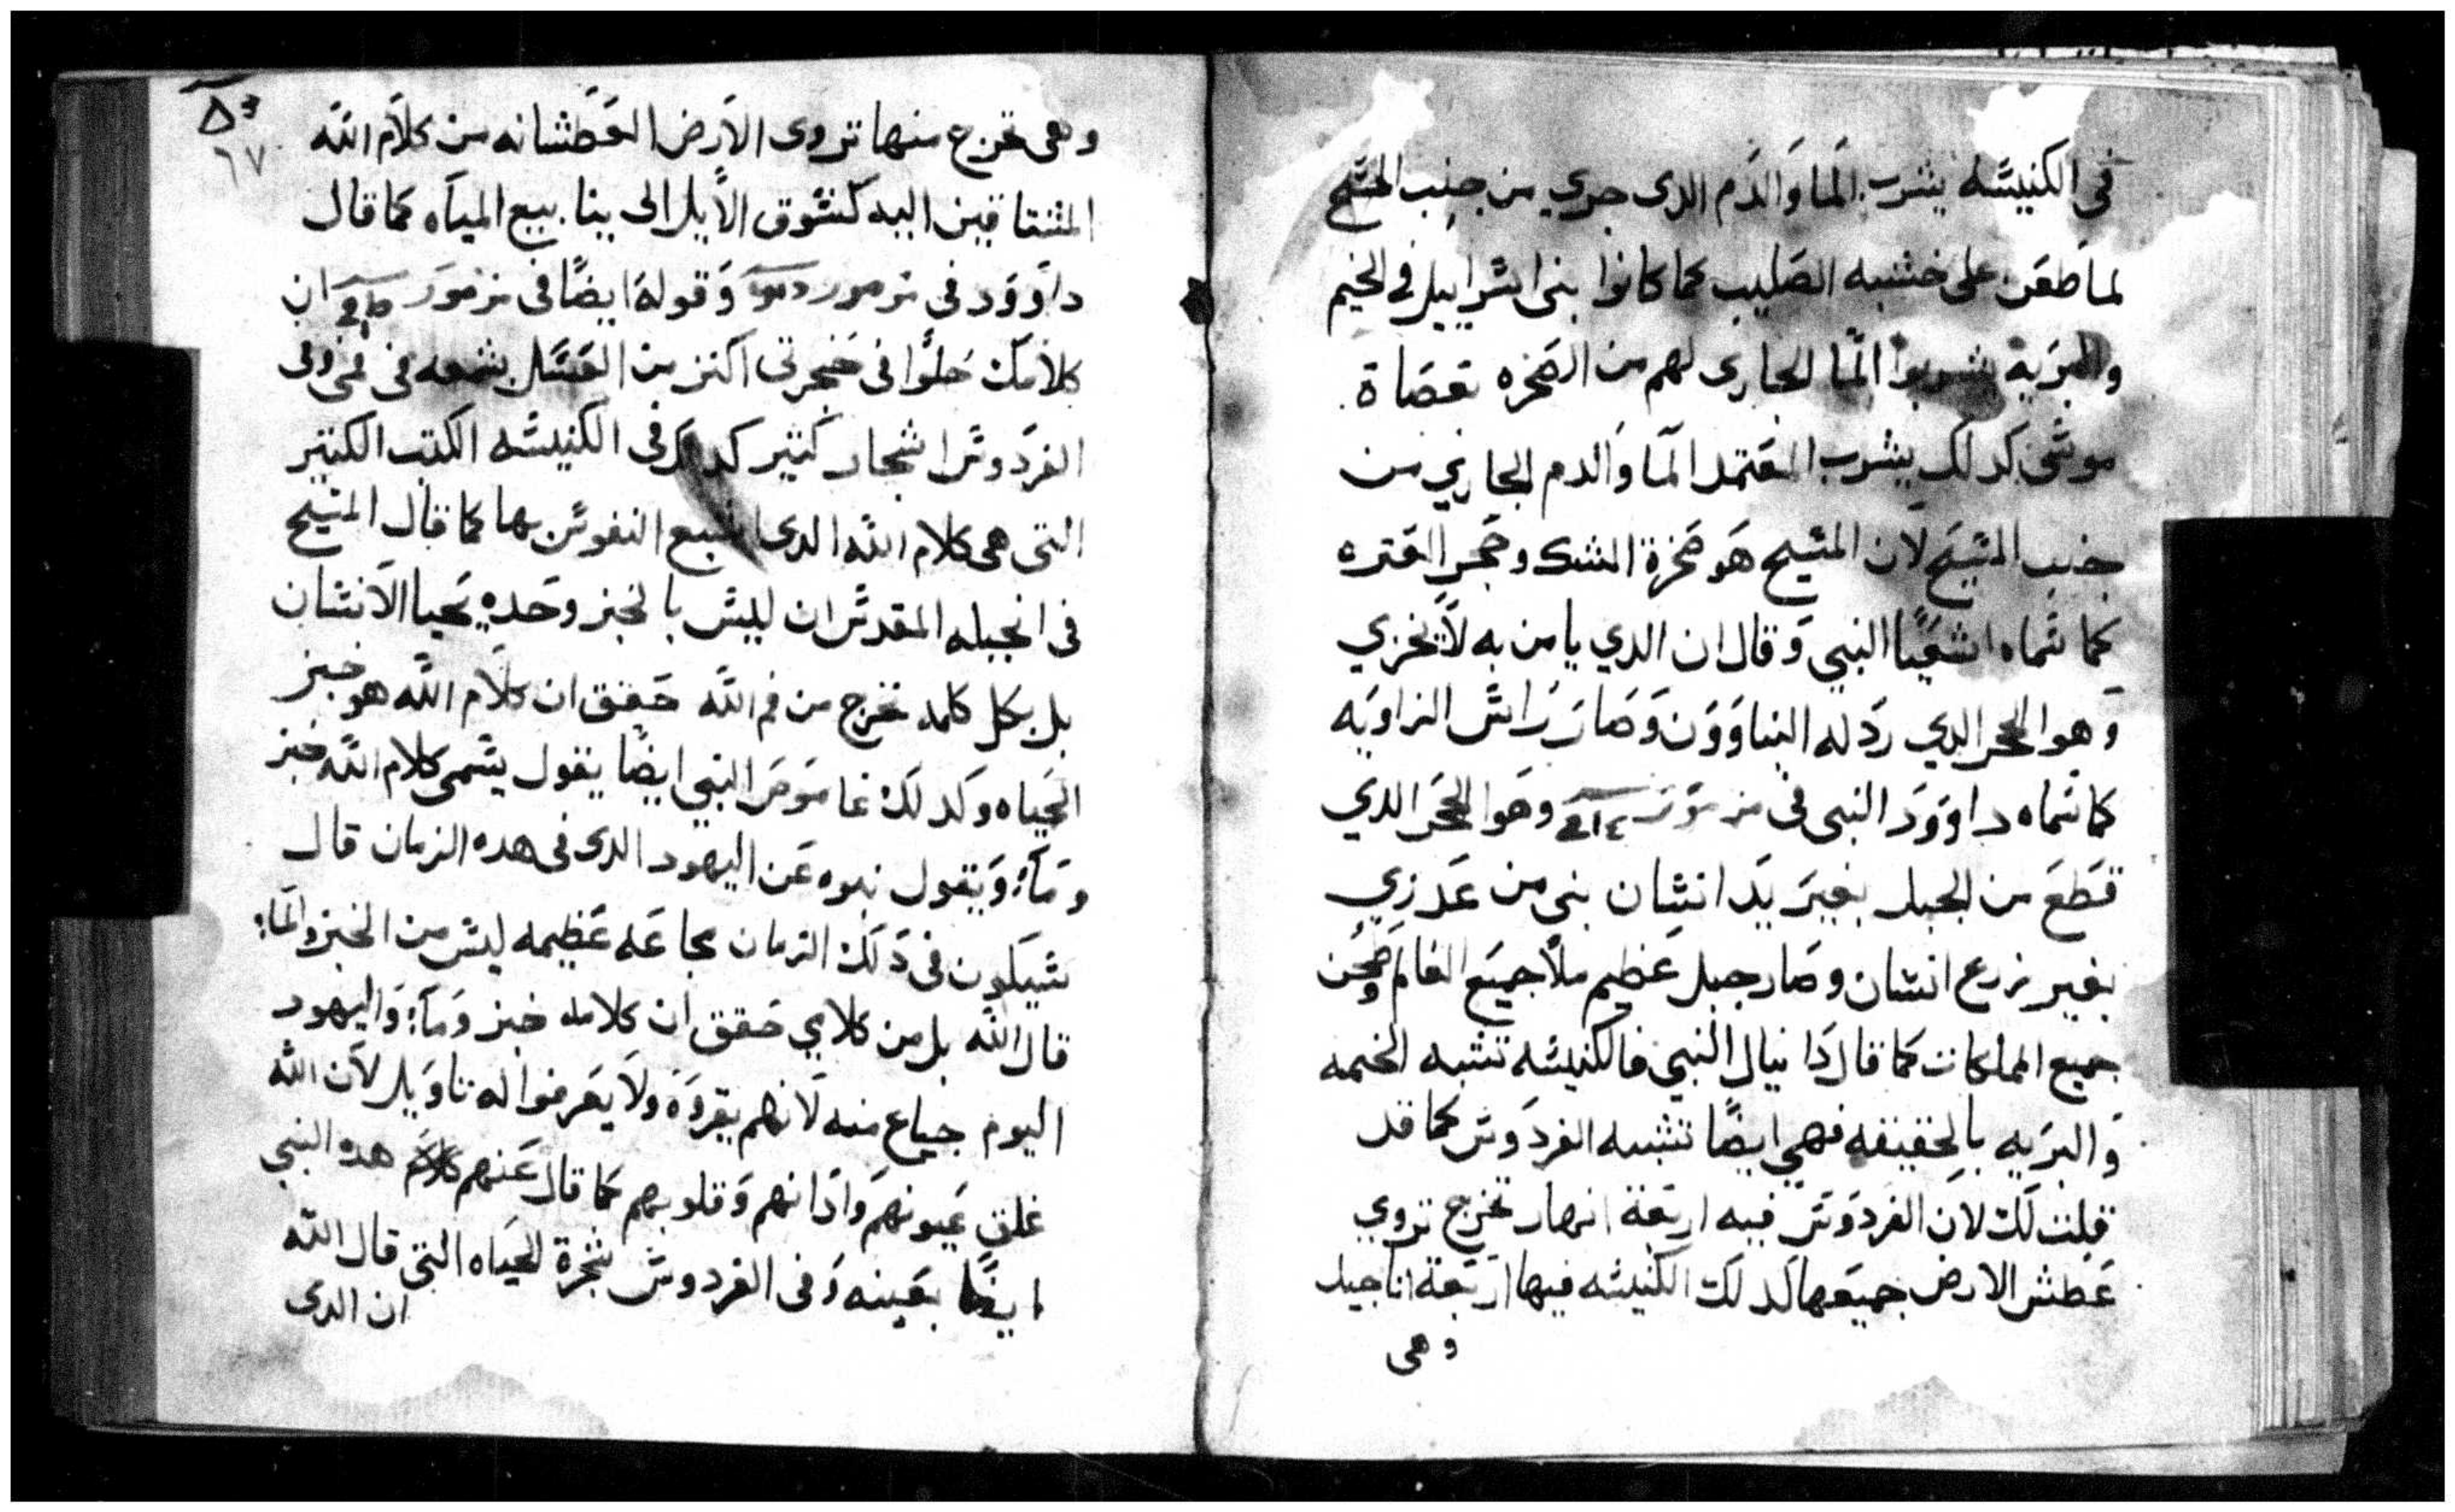 في الكنيسه يشرب الما والدم الدى جري من جنب المسيح
لما طعن على خشبه الصليب كما كانوا بنى اسراييل في الخيم
والبريه يشربوا الما الجارى لهم من الصخره بعصاة
موسى كدلك يشرب المعتمد الما والدم الجاري من
جنب المسيح لان المسيح هو صخرة الشك وحجر العتره
كما سماه اشعيا النبي وقال ان الدي يامن به لا يخزي
وهوا الحجر الدي ردله البناوون وصار راس الزاويه
كما سماه داوود النبى فى مزمور وهوا الحجر الدي
قطع من الجبل بغير يد انسان بنى من عدرى
بغير زرع انسان وصار جبل عظيم ملا جميع العالم وطحن
جميع المملكات كما قال دانيال النبي فالكنيسه تشبه الخيمه
والبريه بالحقيقه فهي ايضًا تشبه الفردوس كما قد
قلت لك لان الفردوس فيه اربعة انهار تخرج تروي
عطش الارض جميعها كدلك الكنيسه فيها اربعة اناجيل
وهى
٥٣
٦٧
وهى تخرج منها تروى الارض العطشانه من كلام الله
المشتاقين اليه كشوق الايل الى ينابيع المياه كما قال
داوود فى مزمور وقوله ايضًا فى مزمور ان
كلامك حلوا فى حنجرتى اكتر من العسل بشهده فى فمى وفى
الفردوس اشجار كتير كدلك فى الكنيسه الكتب الكتير
التى هى كلام الله الدى تشبع النفوس بها كما قال المسيح
فى انجيله المقدس ان ليس بالخبز وحده يحيا الانسان
بل بكل كلمه تخرج من فم الله حقق ان كلام الله هو خبز
الحياه وكدلك عاموص النبي ايضًا يقول يسمى كلام الله خبز
وماء ويقول نبوه عن اليهود الدى فى هده الزمان قال
سيكون فى دلك الزمان مجاعه عظيمه ليس من الخبز والماء
قال الله بل من كلامي حقق ان كلامه خبز وماء واليهود
اليوم جياع منه لانهم يقروه ولا يعرفوا له تاويل لان الله
غلق عيونهم وادانهم وقلوبهم كما قال عنهم هده النبي
ايضًا بعينه وفى الفردوس شجرة الحياه التى قال الله
ان الدى